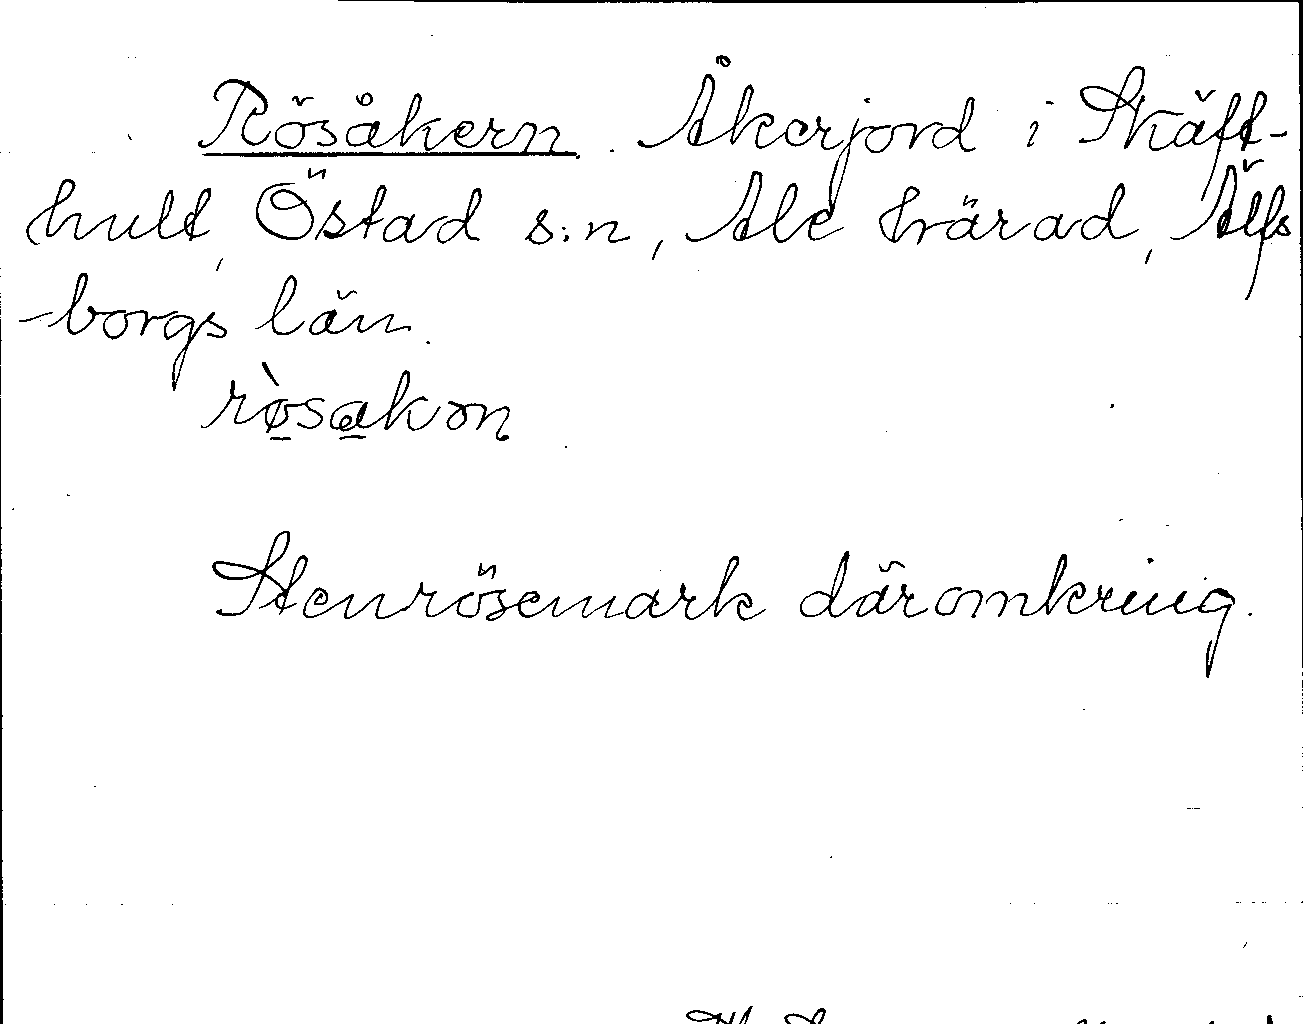 Rösåkern. Åkerjord i Skäft-
hult, Östad s:n, Ale härad, Älfs
-borgs län.
rø̀sakən
Stenrösemark däromkring.